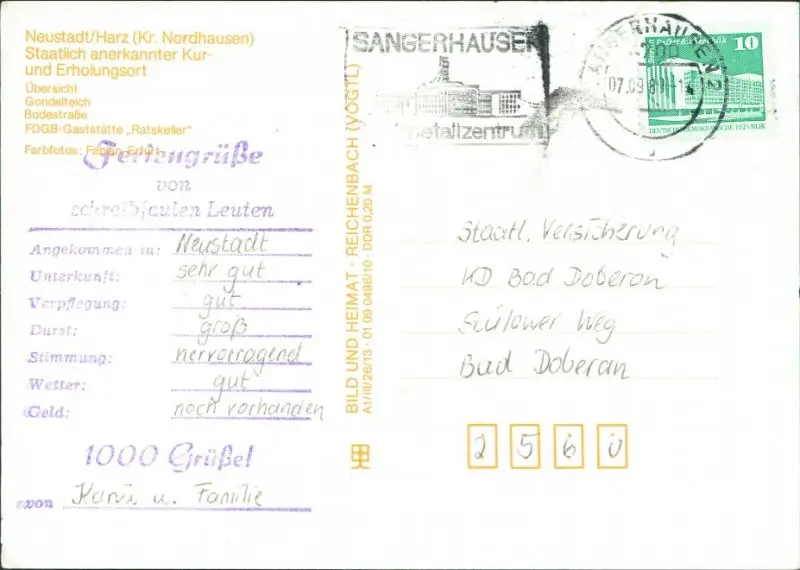 Neustadt/Harz (Kr. Nordhausen)
Staatlich anerkannter Kur-
und Erholungsort
Übersicht
Gondelteich
Bodestraße
FDGB-Gaststätte „Ratskeller"
Farbfotos: Fabian, Erfurt
Feriengrüße
von
schreibfaulen Leuten
Angekommen in: Neustadt
Unterkunft: sehr gut
Verpflegung: gut
Durst: groß
Stimmung: hervorragend
Wetter: gut
Geld: noch vorhanden
1000 Grüße!
von Karin u. Familie
BILD UND HEIMAT · REICHENBACH (VOGTL)
A1/III/26/13 · 01 09 0496/10 · DDR 0,20 M
SANGERHAUSEN
etallzentrum
SANGERHAUSEN 2
07.09.8
Berlin Palast der Republik
10
DEUTSCHE DEMOKRATISCHE REPUBLIK
Staatl. Versicherung
KD Bad Doberan
Sülower Weg
Bad Doberan
2 5 6 0